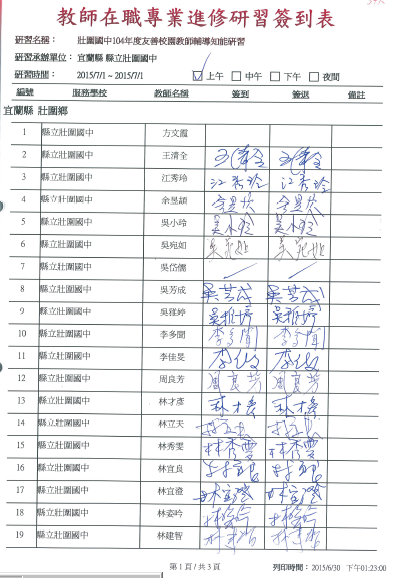 教師在職專業進修研習簽到表
研習名稱： 壯圍國中104年度友善校園教師輔導知能研習
研習承辦單位： 宜蘭縣 縣立壯圍國中
研習時間： 2015/7/1 ~ 2015/7/1 上午 中午 下午 夜間
編號 服務學校 教師名稱 簽到 簽退 備註
宜蘭縣 壯圍鄉
1 縣立壯圍國中 方文
2 縣立壯圍國中 王清全 王清全 王清全
3 縣立壯圍國中 江秀玲 江秀玲 江秀玲
4 縣立壯圍國中 余昱
5 縣立壯圍國中 吳小玲 吳小玲 吳小玲
6 縣立壯圍國中 吳宛如 吳宛如 吳宛如
7 縣立壯圍國中 吳岱儒
8 縣立壯圍國中 吳芳成 吳芳成 吳芳成
9 縣立壯圍國中 吳雅婷 吳雅婷 吳雅婷
10 縣立壯圍國中 李多聞 李多聞 李多聞
11 縣立壯圍國中 李佳旻
12 縣立壯圍國中 周良芳 周良芳 周良芳
13 縣立壯圍國中 林才彥
14 縣立壯圍國中 林立夫
15 縣立壯圍國中 林秀雯 林秀雯 林秀雯
16 縣立壯圍國中 林宜良
17 縣立壯圍國中 林宜澄 林宜澄 林宜澄
18 縣立壯圍國中 林姿吟 林姿吟 林姿吟
19 縣立壯圍國中 林建智
第 1 頁 / 共 3 頁 列印時間： 2015/6/30 下午01:23:00